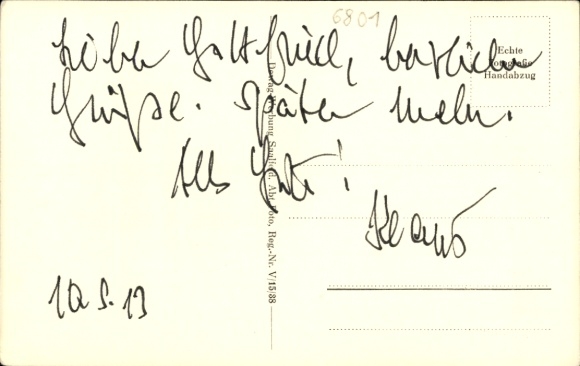 6801
Lieber Gottfried, herzliche
Grüße. Später mehr.
Alles Gute!
Klaus
10.5.13
Echte
Fotografie
Handabzug
Dewag-Werbung Saalfeld, Abt. Foto, Reg.-Nr. V/15/38